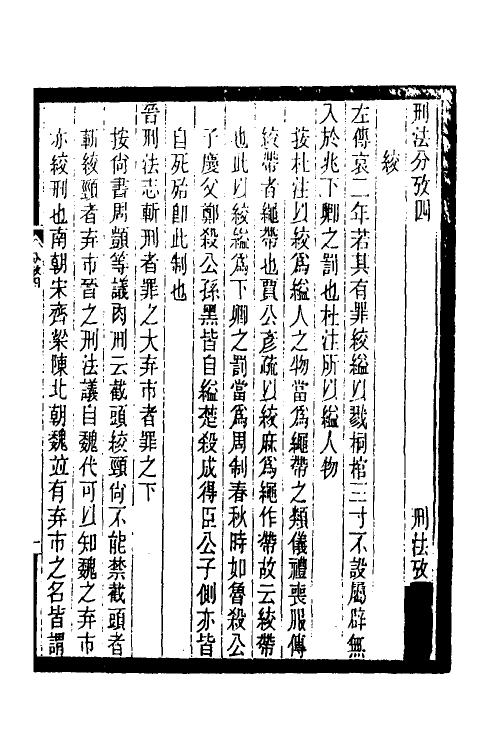 刑法分攷四　刑法攷
絞
左傳哀二年若其有罪絞縊以戮桐棺三寸不設屬辟無
入於兆下卿之罰也杜注所以縊人物
按杜注以絞爲縊人之物當爲繩帶之類儀禮喪服傳
絞帶者繩帶也賈公彥疏以絞麻爲繩作帶故云絞帶
也此以絞縊爲下卿之罰當爲周制春秋時如魯殺公
子慶父鄭殺公孫黑皆自縊楚殺成得臣公子側亦皆
自死殆卽此制也
晉刑法志斬刑者罪之大棄市者罪之下
按尙書周顗等議肉刑云截頭絞頸尙不能禁截頭者
斬絞頸者棄市晉之刑法議自魏代可以知魏之棄市
亦絞刑也南朝宋齊梁陳北朝魏竝有棄市之名皆謂